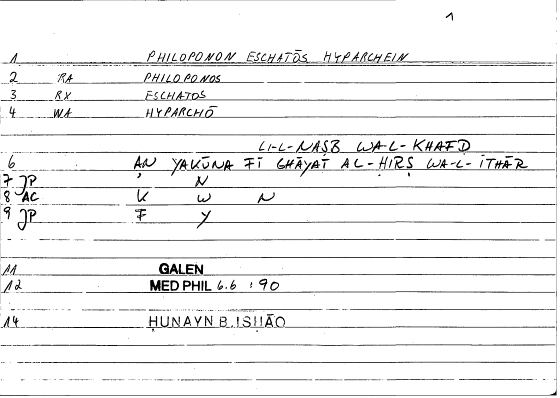 1
1 PHILOPONON ESCHATŌS HYPARCHEIN
2 RA PHILOPONOS
3 RX ESCHATOS
4 WA HYPARCHŌ
LI-L-NAṢB WA-L-KHAFḌ
6 AN YAKŪNA FĪ GHĀYAT AL-ḤIRṢ WA-L-ĪTHĀR
7 JP ' N
8 AC K W N
9 JP F Y
11 GALEN
12 MED PHIL 6.6 :90
14 ḤUNAYN B. ISḤĀQ